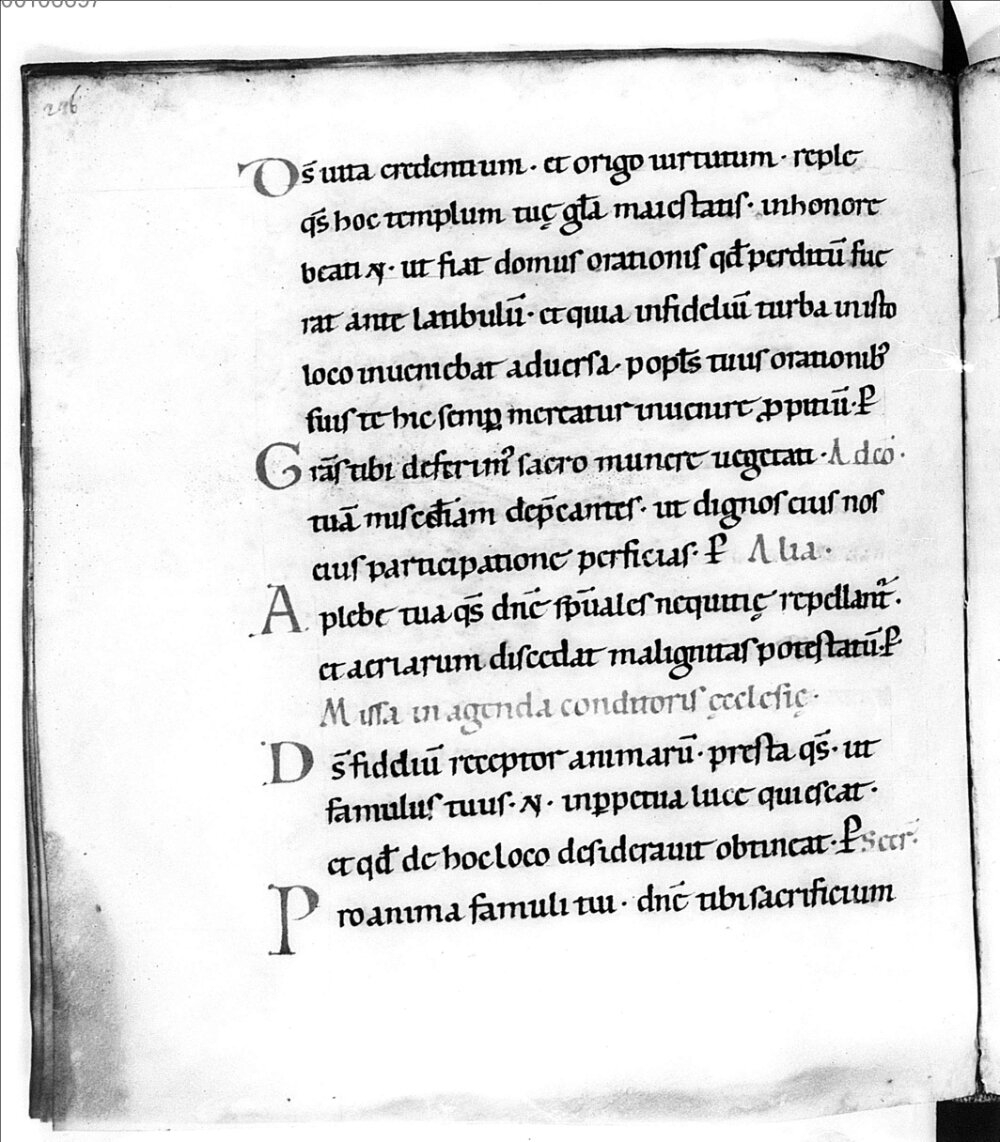 246
Ds̄ uita credentium · et origo uirtutum · reple
qs̄ hoc templum tuę gl̄a maiestatis · in honore
beati N · ut fiat domus orationis qd̄ perditū fue
rat ante latibulū · et quia infideliū turba in isto
loco inueniebat aduersa · popl̄s tuus orationibꝰ
suis te hic semꝑ mereatur inuenire ꝓpitiū · P̄
Gr̄as tibi deferimꝰ sacro munere uegetati · Ad cō ·
tuā misc̄diam dep̄cantes · ut dignos eius nos
eius participatione perficias · P̄ Alia ·
A plebe tua qs̄ dn̄e sp̄uales nequitię repellant᷑ ·
et aeriarum discedat malignitas potestatū · P̄
Missa in agenda conditoris ęcclesię ·
Ds̄ fideliū receptor animarū · presta qs̄ · ut
famulus tuus · N · in ꝑpetua luce quiescat ·
et qd̄ de hoc loco desiderauit obtineat · P̄ Secr̄ ·
Pro anima famuli tui · dn̄e tibi sacrificium